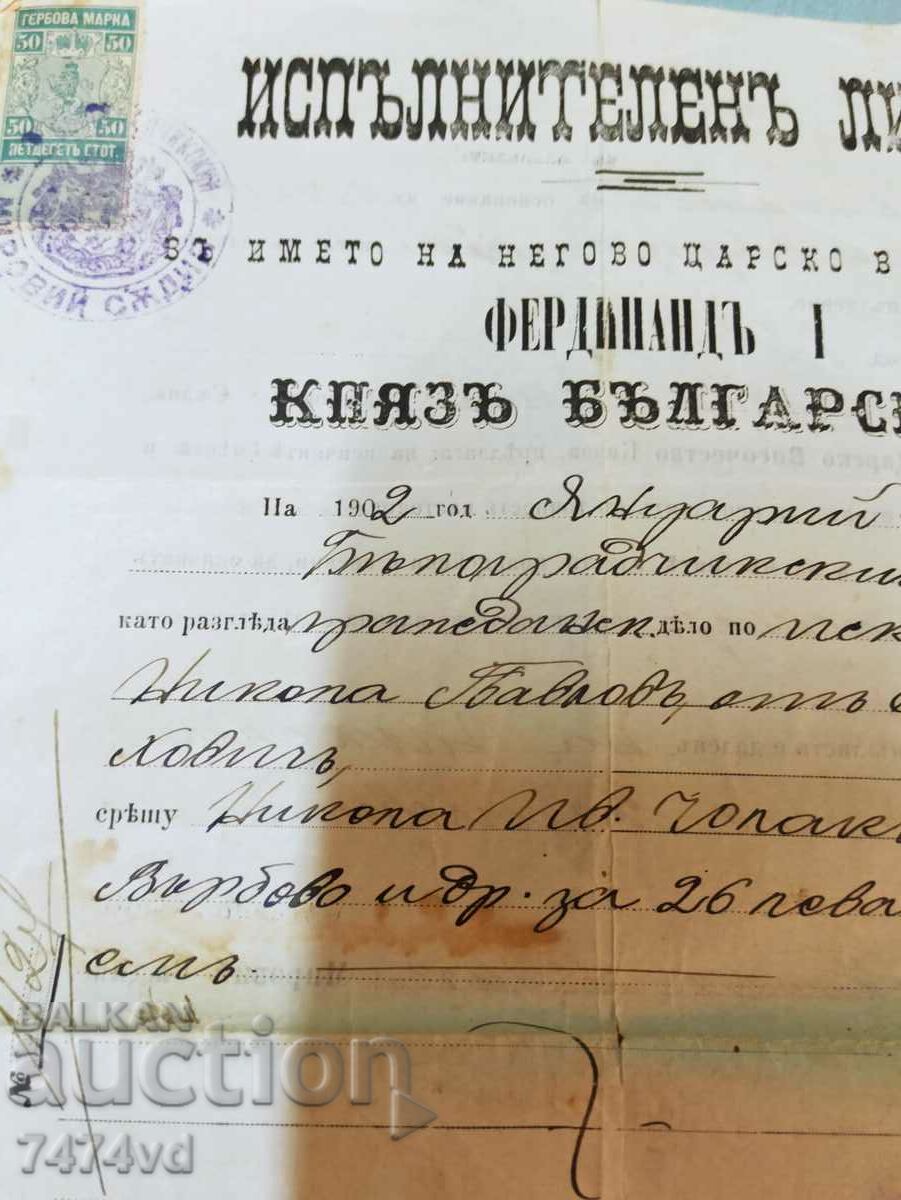 ГЕРБОВА МАРКА
50 50
50 50
ПЕТДЕСЕТЬ СТОТ.
МИРОВИЙ СѪДИЯ
ИСПЪЛНИТЕЛЕНЪ ЛИ
ВЪ ИМЕТО НА НЕГОВО ЦАРСКО В
ФЕРДИНАНДЪ I
КНЯЗЪ БЪЛГАРС
На 1902 год Януарий
Бѣлоградчикский
като разгледа гражданск. дѣло по иск
Никола Павловъ, отъ с.
Ховичъ,
срѣщу Никола Ив. Чолак
Върбово и др. за 26 лева
смъ.
№
BALKAN
auction
7474vd